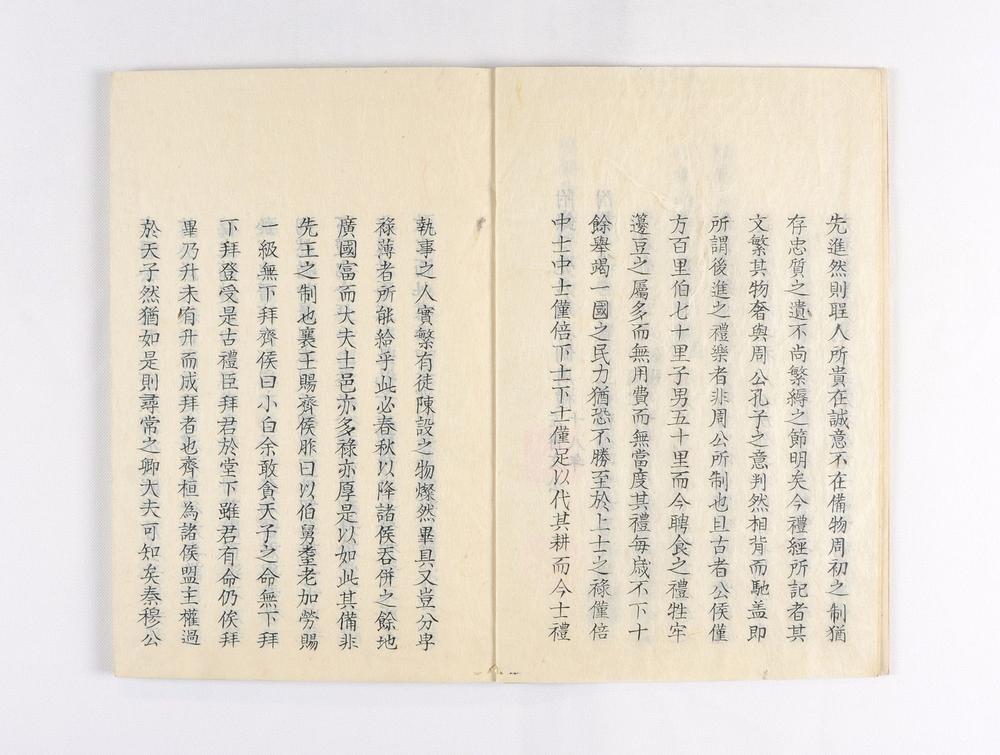 先進然則聖人所貴在誠意不在備物周初之制猶
存忠質之遺不尚繁縟之節明矣今禮經所記者其
文繁其物奢與周公孔子之意判然相背而馳蓋即
所謂後進之禮樂者非周公所制也且古者公侯僅
方百里伯七十里子男五十里而今聘食之禮牲牢
籩豆之屬多而無用費而無當度其禮每歲不下十
餘舉竭一國之民力猶恐不勝至於上士之祿僅倍
中士中士僅倍下士下士僅足以代其耕而今士禮
執事之人實繁有徒陳設之物燦然畢具又豈分卑
祿薄者所能給乎此必春秋以降諸侯吞併之餘地
廣國富而大夫士邑亦多祿亦厚是以如此其備非
先王之制也襄王賜齊侯胙曰以伯舅耋老加勞賜
一級無下拜齊侯曰小白余敢貪天子之命無下拜
下拜登受是古禮臣拜君於堂下雖君有命仍俟拜
畢乃升未有升而成拜者也齊桓為諸侯盟主權過
於天子然猶如是則尋常之卿大夫可知矣秦穆公